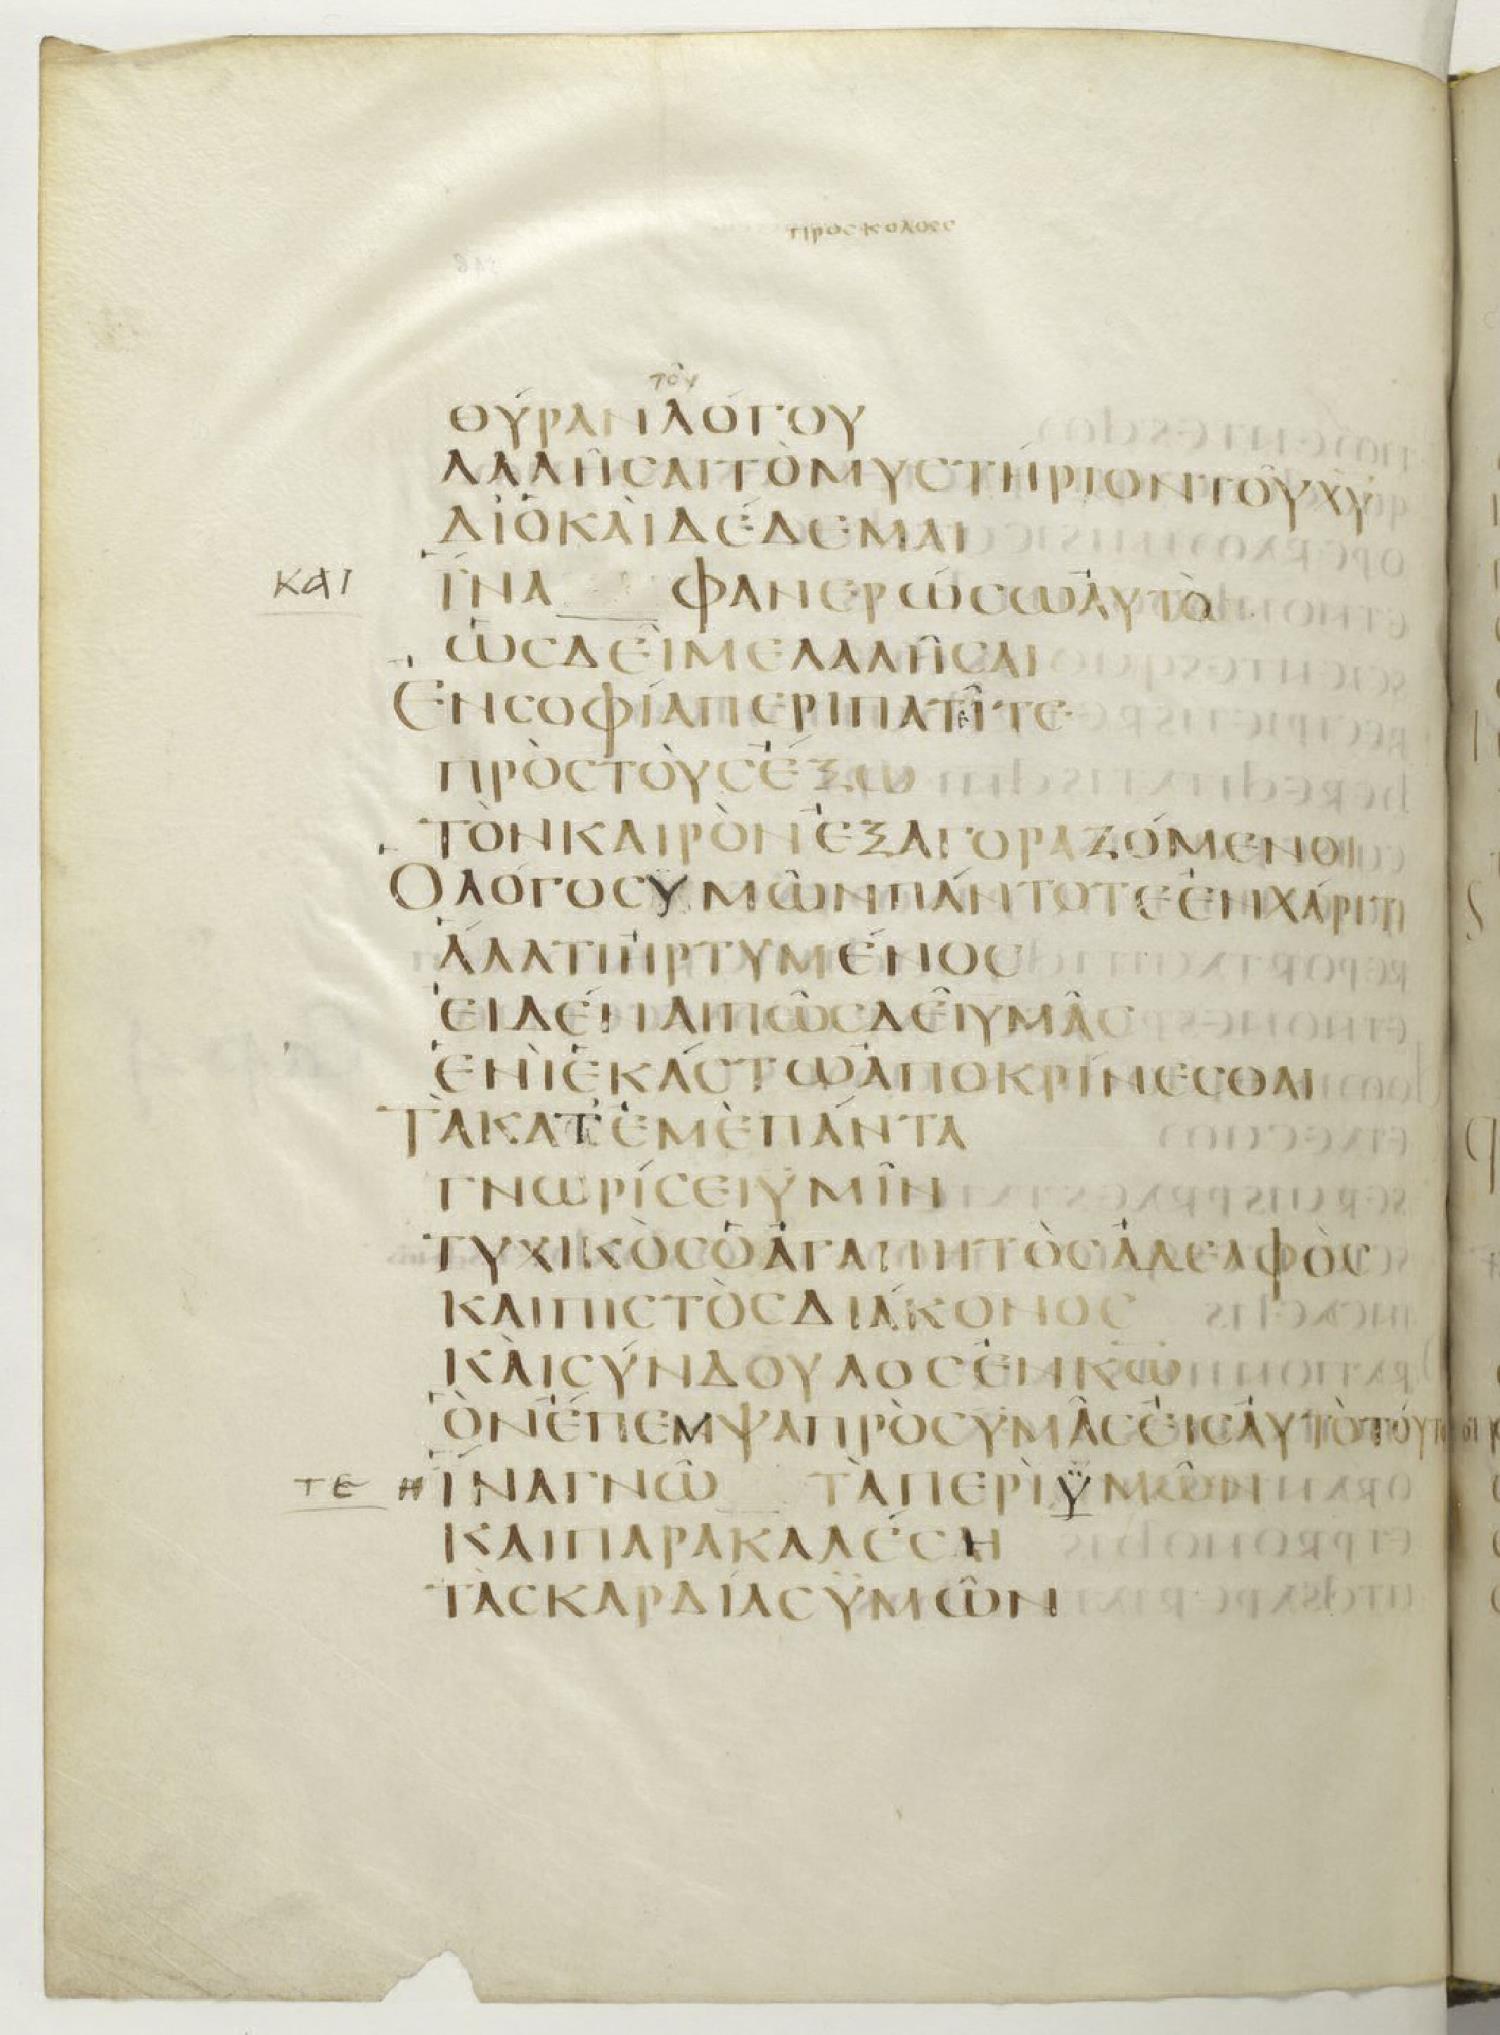 ΠΡΟϹΚΟΛΟϹϹ
τοῦ
ΘΎΡΑΝΛΌΓΟΥ
ΛΑΛΗ͂ϹΑΙΤῸΜΥϹΤΉΡΙΟΝΤΟΥ͂ΧΥ
ΔΙ᾿ΟΚᾺΙΔΈΔΕΜΑΙ
ΚΑΙ ἽΝΑ ΦΑΝΕΡΏϹΩἈΥΤῸ
ὩϹΔΕΙ͂ΜΕΛΑΛΗ͂ϹΑΙ
ἘΝϹΟΦΊΑΠΕΡΙΠΑΤΙ͂ΤΕ
ΠΡῸϹΤΟῪϹἜΞΩ
ΤῸΝΚΑΙΡῸΝἘΞΑΓΟΡΑΖΌΜΕΝΟΙ
ὉΛΌΓΟϹΥΜΩ͂ΝΠΆΝΤΟΤΕἘΝΧΆΡΙΤΙ
ἍΛΑΤΙἨΡΤΥΜΈΝΟϹ
ἘΙΔΈΝΑΙΠΩ͂ϹΔΕΙ͂ΥΜΑ͂Ϲ
ἙΝῚἙΚΆϹΤΩἈΠΟΚΡΊΝΕϹΘΑΙ
ΤᾺΚΑΤ᾿ἘΜῈΠΆΝΤΑ
ΓΝΩΡΊϹΕΙΥΜΙ͂Ν
ΤΥΧΙΚῸϹὉἈΓΑΠΗΤῸϹἈΔΕΛΦῸϹ
ΚΑΙΠΙϹΤῸϹΔΙΆΚΟΝΟϹ
ΚᾺΙϹΎΝΔΟΥΛΟϹἘΝΚΩ
ὋΝἜΠΕΜΨΑΠΡῸϹΥΜΑ͂ϹἘΙϹἈΥΤῸΤΟΥΤΟ
ΤΕ Η ἽΝΑΓΝΩ͂ ΤᾺΠΕΡῚΫΜΩ͂Ν
ΚΑΙΠΑΡΑΚΑΛΈϹΗ
ΤᾺϹΚΑΡΔΊΑϹΫΜΩ͂Ν